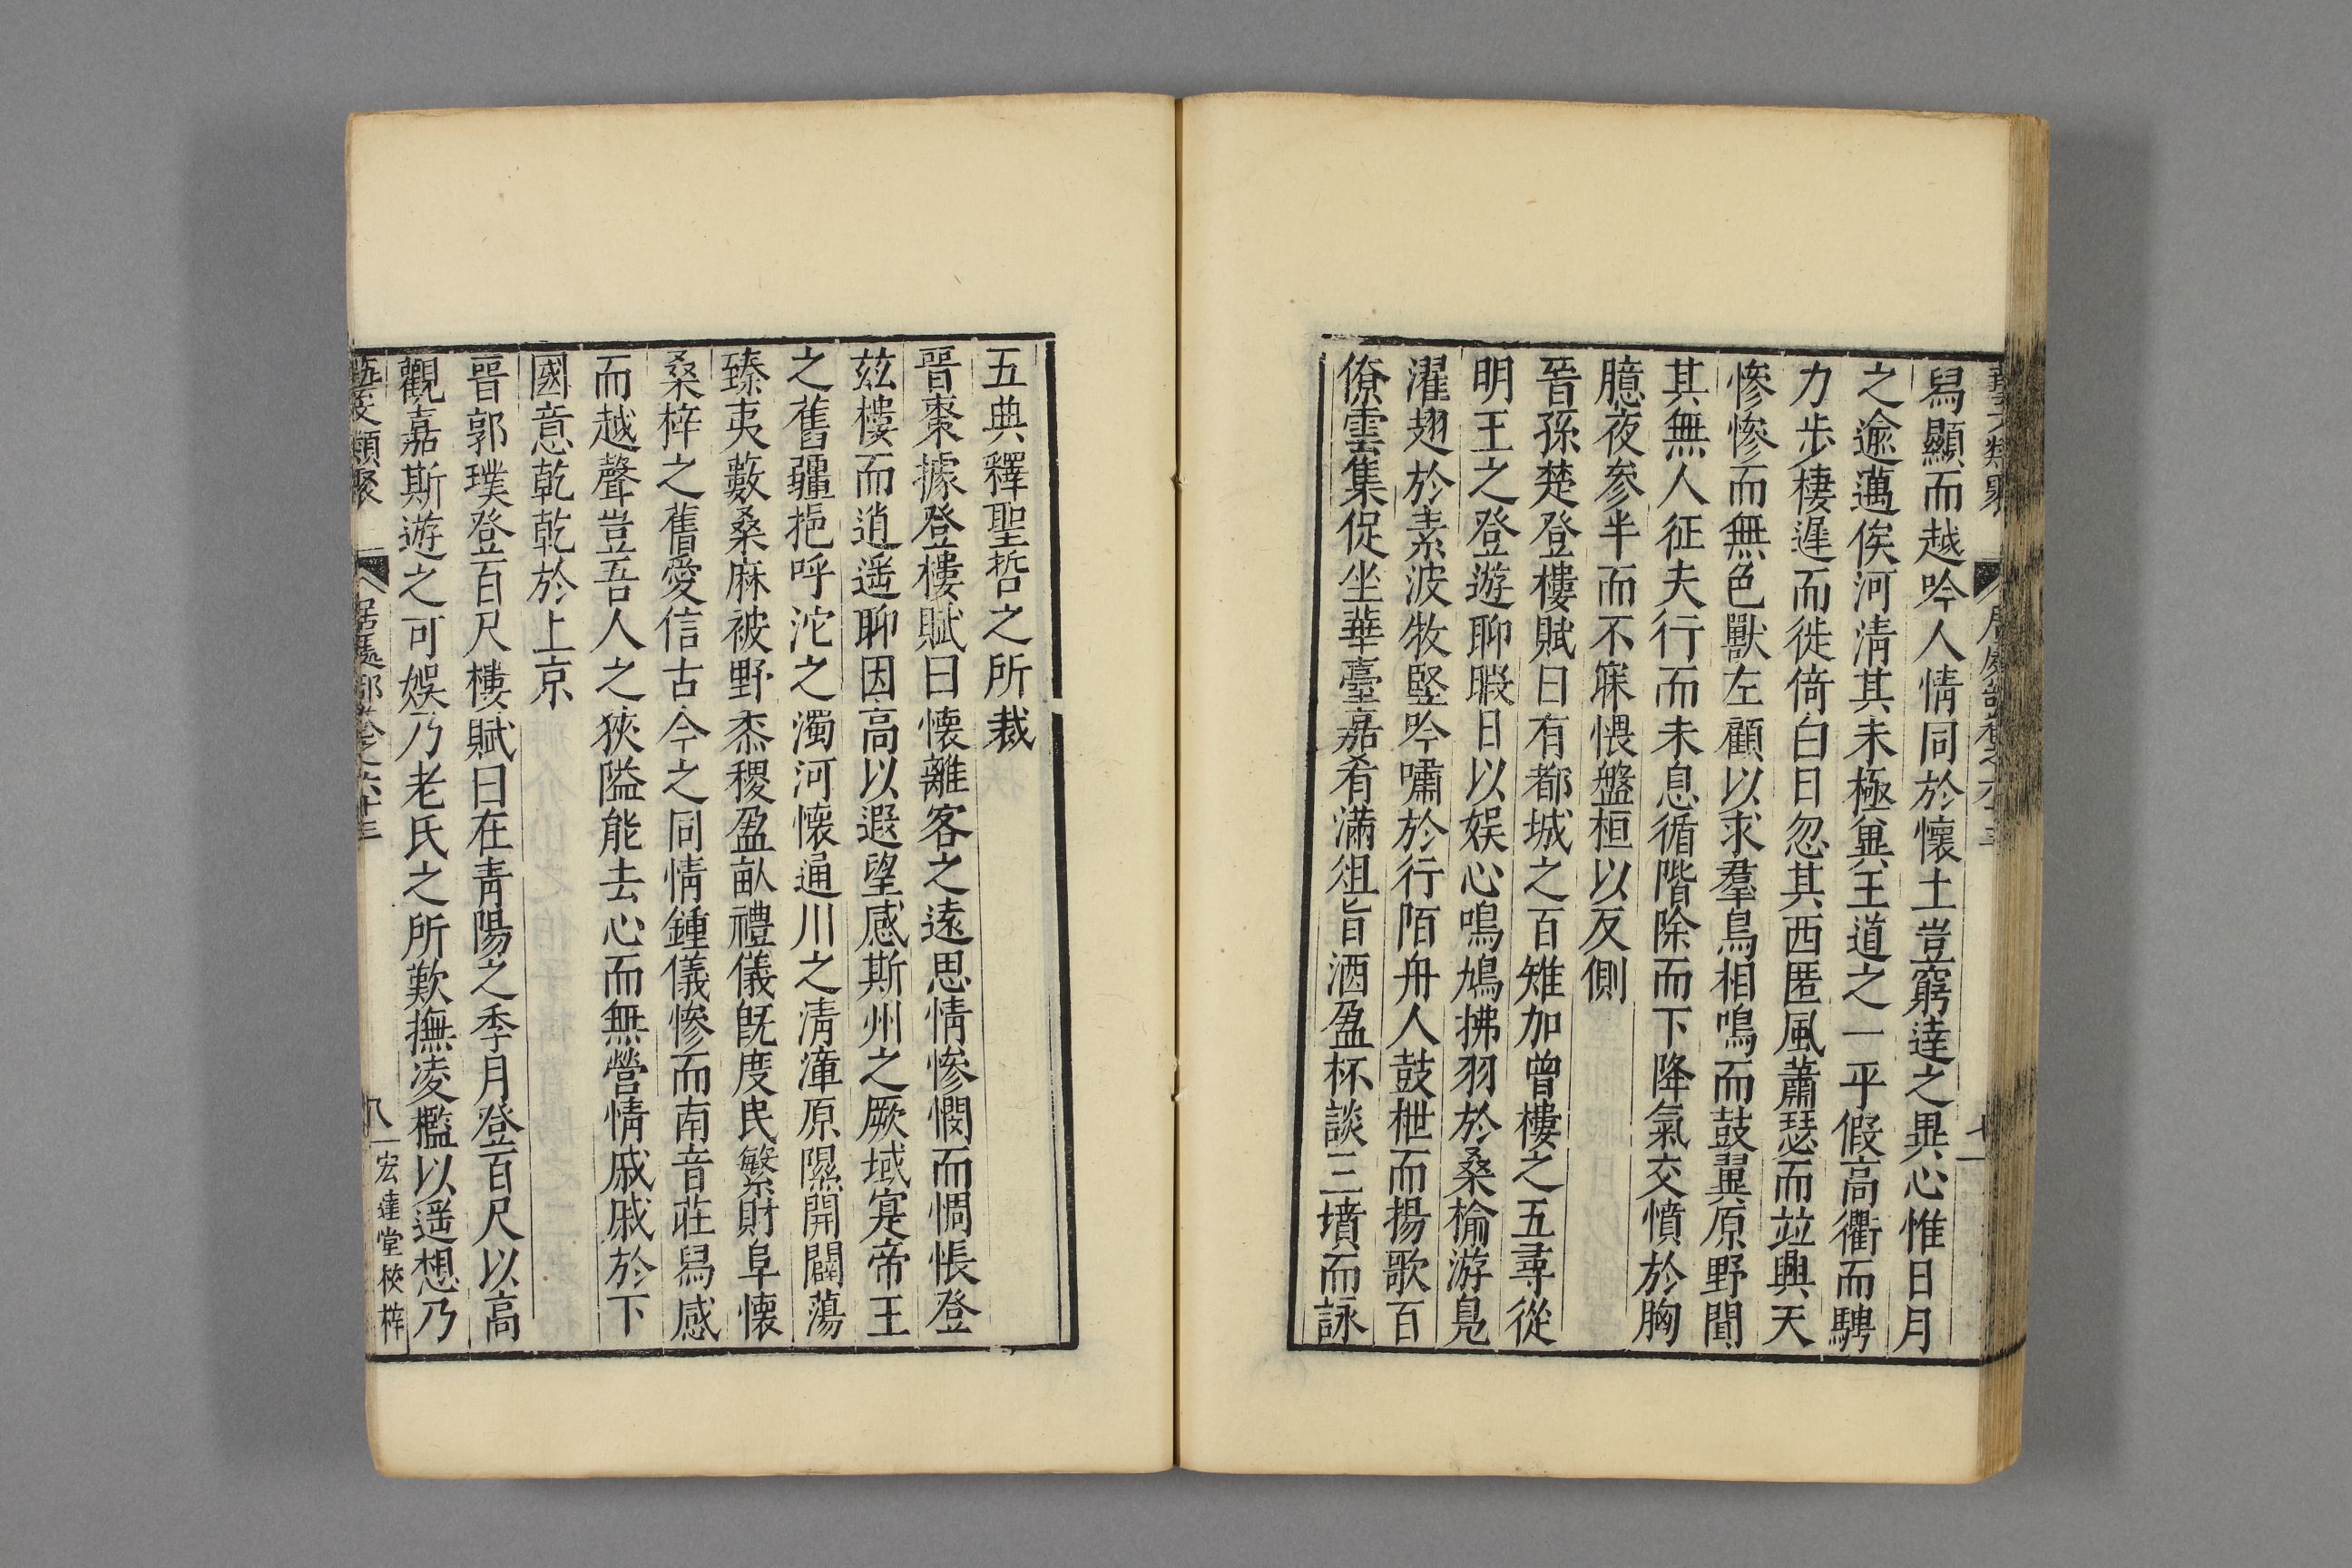 藝文類聚 居處部卷之六十三 七
舄顯而越吟人情同於懷土豈窮達之異心惟日月
之逾邁俟河淸其未極兾王道之一平假高衢而騁
力步棲遲而徙倚白日忽其西匿風蕭瑟而竝興天
慘慘而無色獸左顧以求羣鳥相鳴而鼓翼原野闃
其無人征夫行而未息循階除而下降氣交憤於胸
臆夜參半而不寐悵盤桓以反側
晉孫楚登樓賦曰有都城之百雉加曾樓之五尋從
明王之登遊聊暇日以娱心鳴鳩拂羽於桑榆游鳬
濯翅於素波牧竪吟嘯於行陌舟人鼓枻而揚歌百
僚雲集促坐華臺嘉肴滿俎旨酒盈杯談三墳而詠
五典釋聖哲之所裁
晉棗據登樓賦曰懐離客之遠思情慘憫而惆悵登
兹樓而逍遥聊因高以遐望感斯州之厥域寔帝王
之舊疆挹呼沱之濁河懐通川之淸漳原隰開闢蕩
臻夷藪桑麻被野黍稷盈畝禮儀旣度民繁財阜懐
桑梓之舊愛信古今之同情鍾儀慘而南音莊舄感
而越聲豈吾人之狹隘能去心而無營情戚戚於下
國意乾乾於上京
晉郭璞登百尺樓賦曰在靑陽之季月登百尺以高
觀嘉斯遊之可娱乃老氏之所歎撫凌檻以遥想乃
藝文類聚 居處部卷之六十三 八 宏達堂校梓